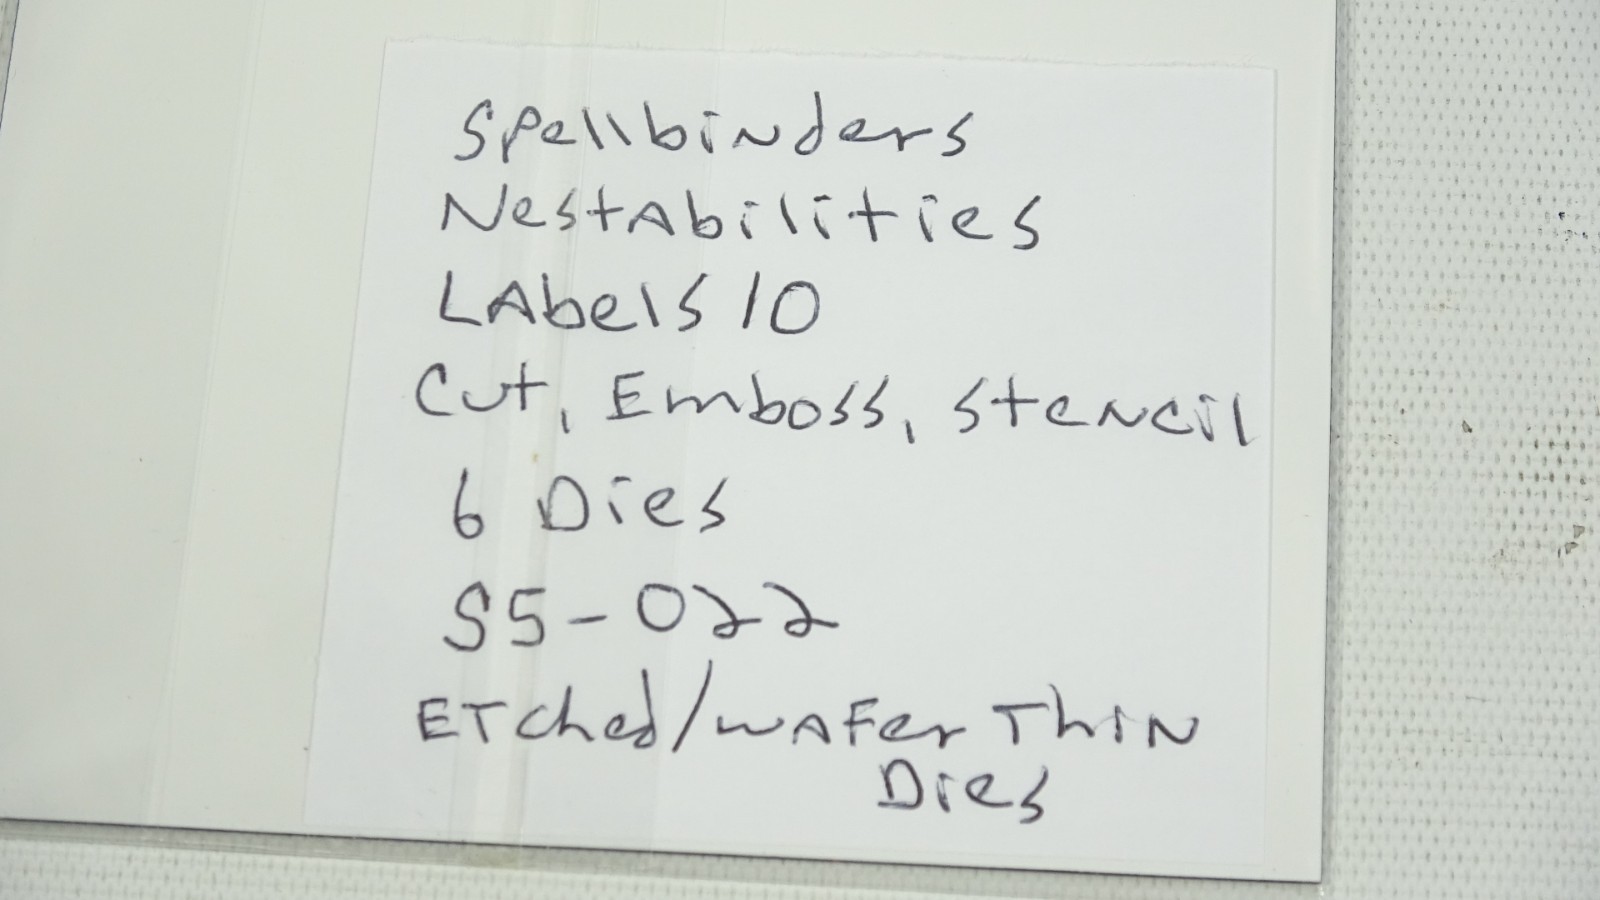 Spellbinders
Nestabilities
Labels 10
Cut, Emboss, Stencil
6 Dies
S5-022
Etched/wafer Thin
Dies